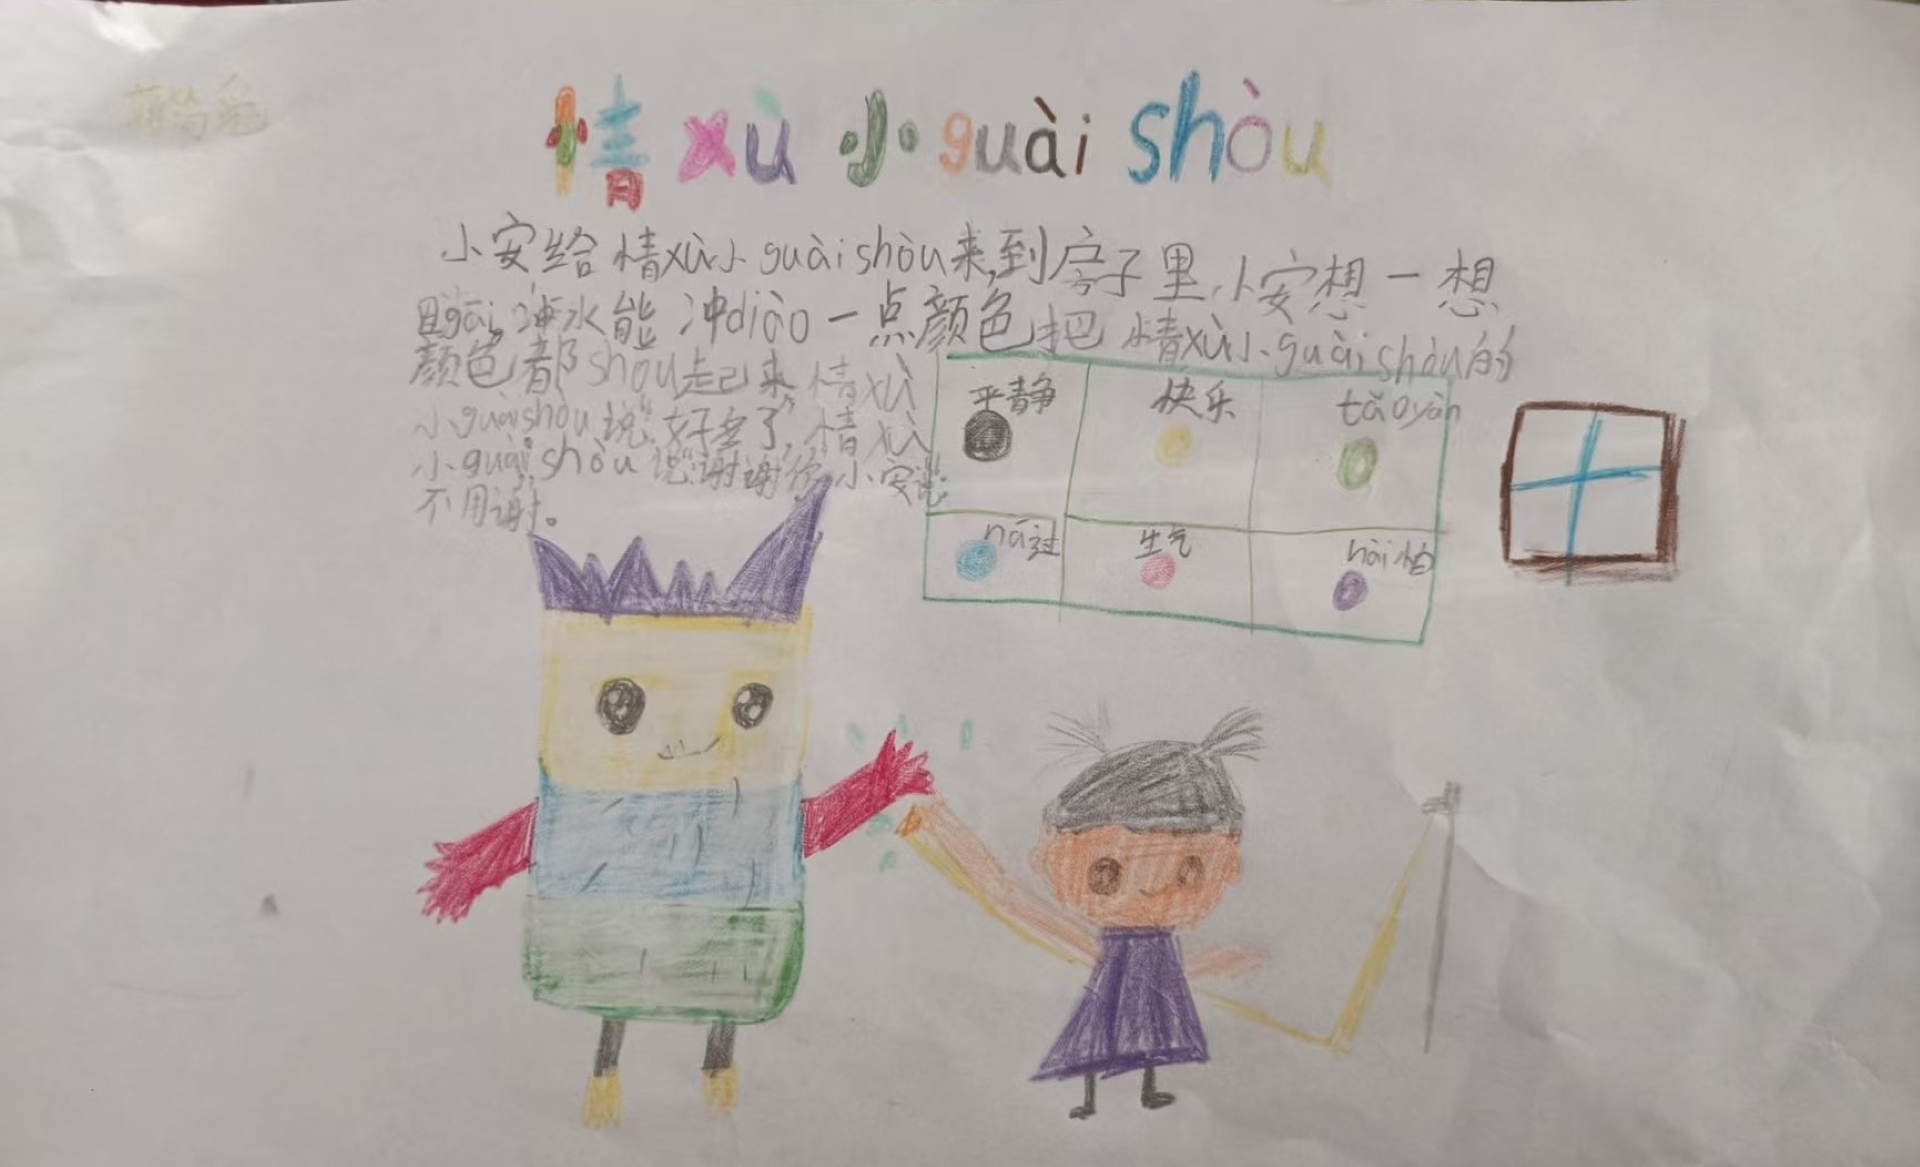 情xù小guài shòu
小安给情xù小guài shòu来到房子里,小安想一想
gāi,冲水能冲diào一点颜色把情xù小guài shòu的
颜色都shōu起来,情xù
小guài shòu说“好多了”,情xù
小guài shòu说“谢谢你”小安说“
不用谢。
平静 快乐 tǎo yàn
ná过 生气 hài怕